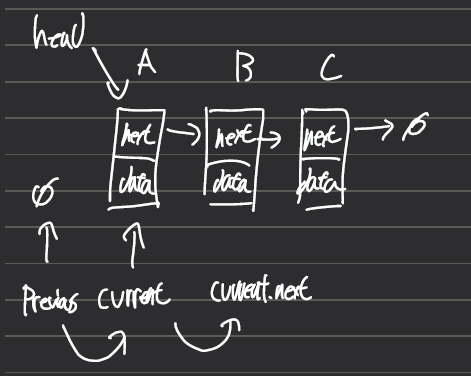 head
A B C
next next next ø
data data data
ø
Previous current current.next